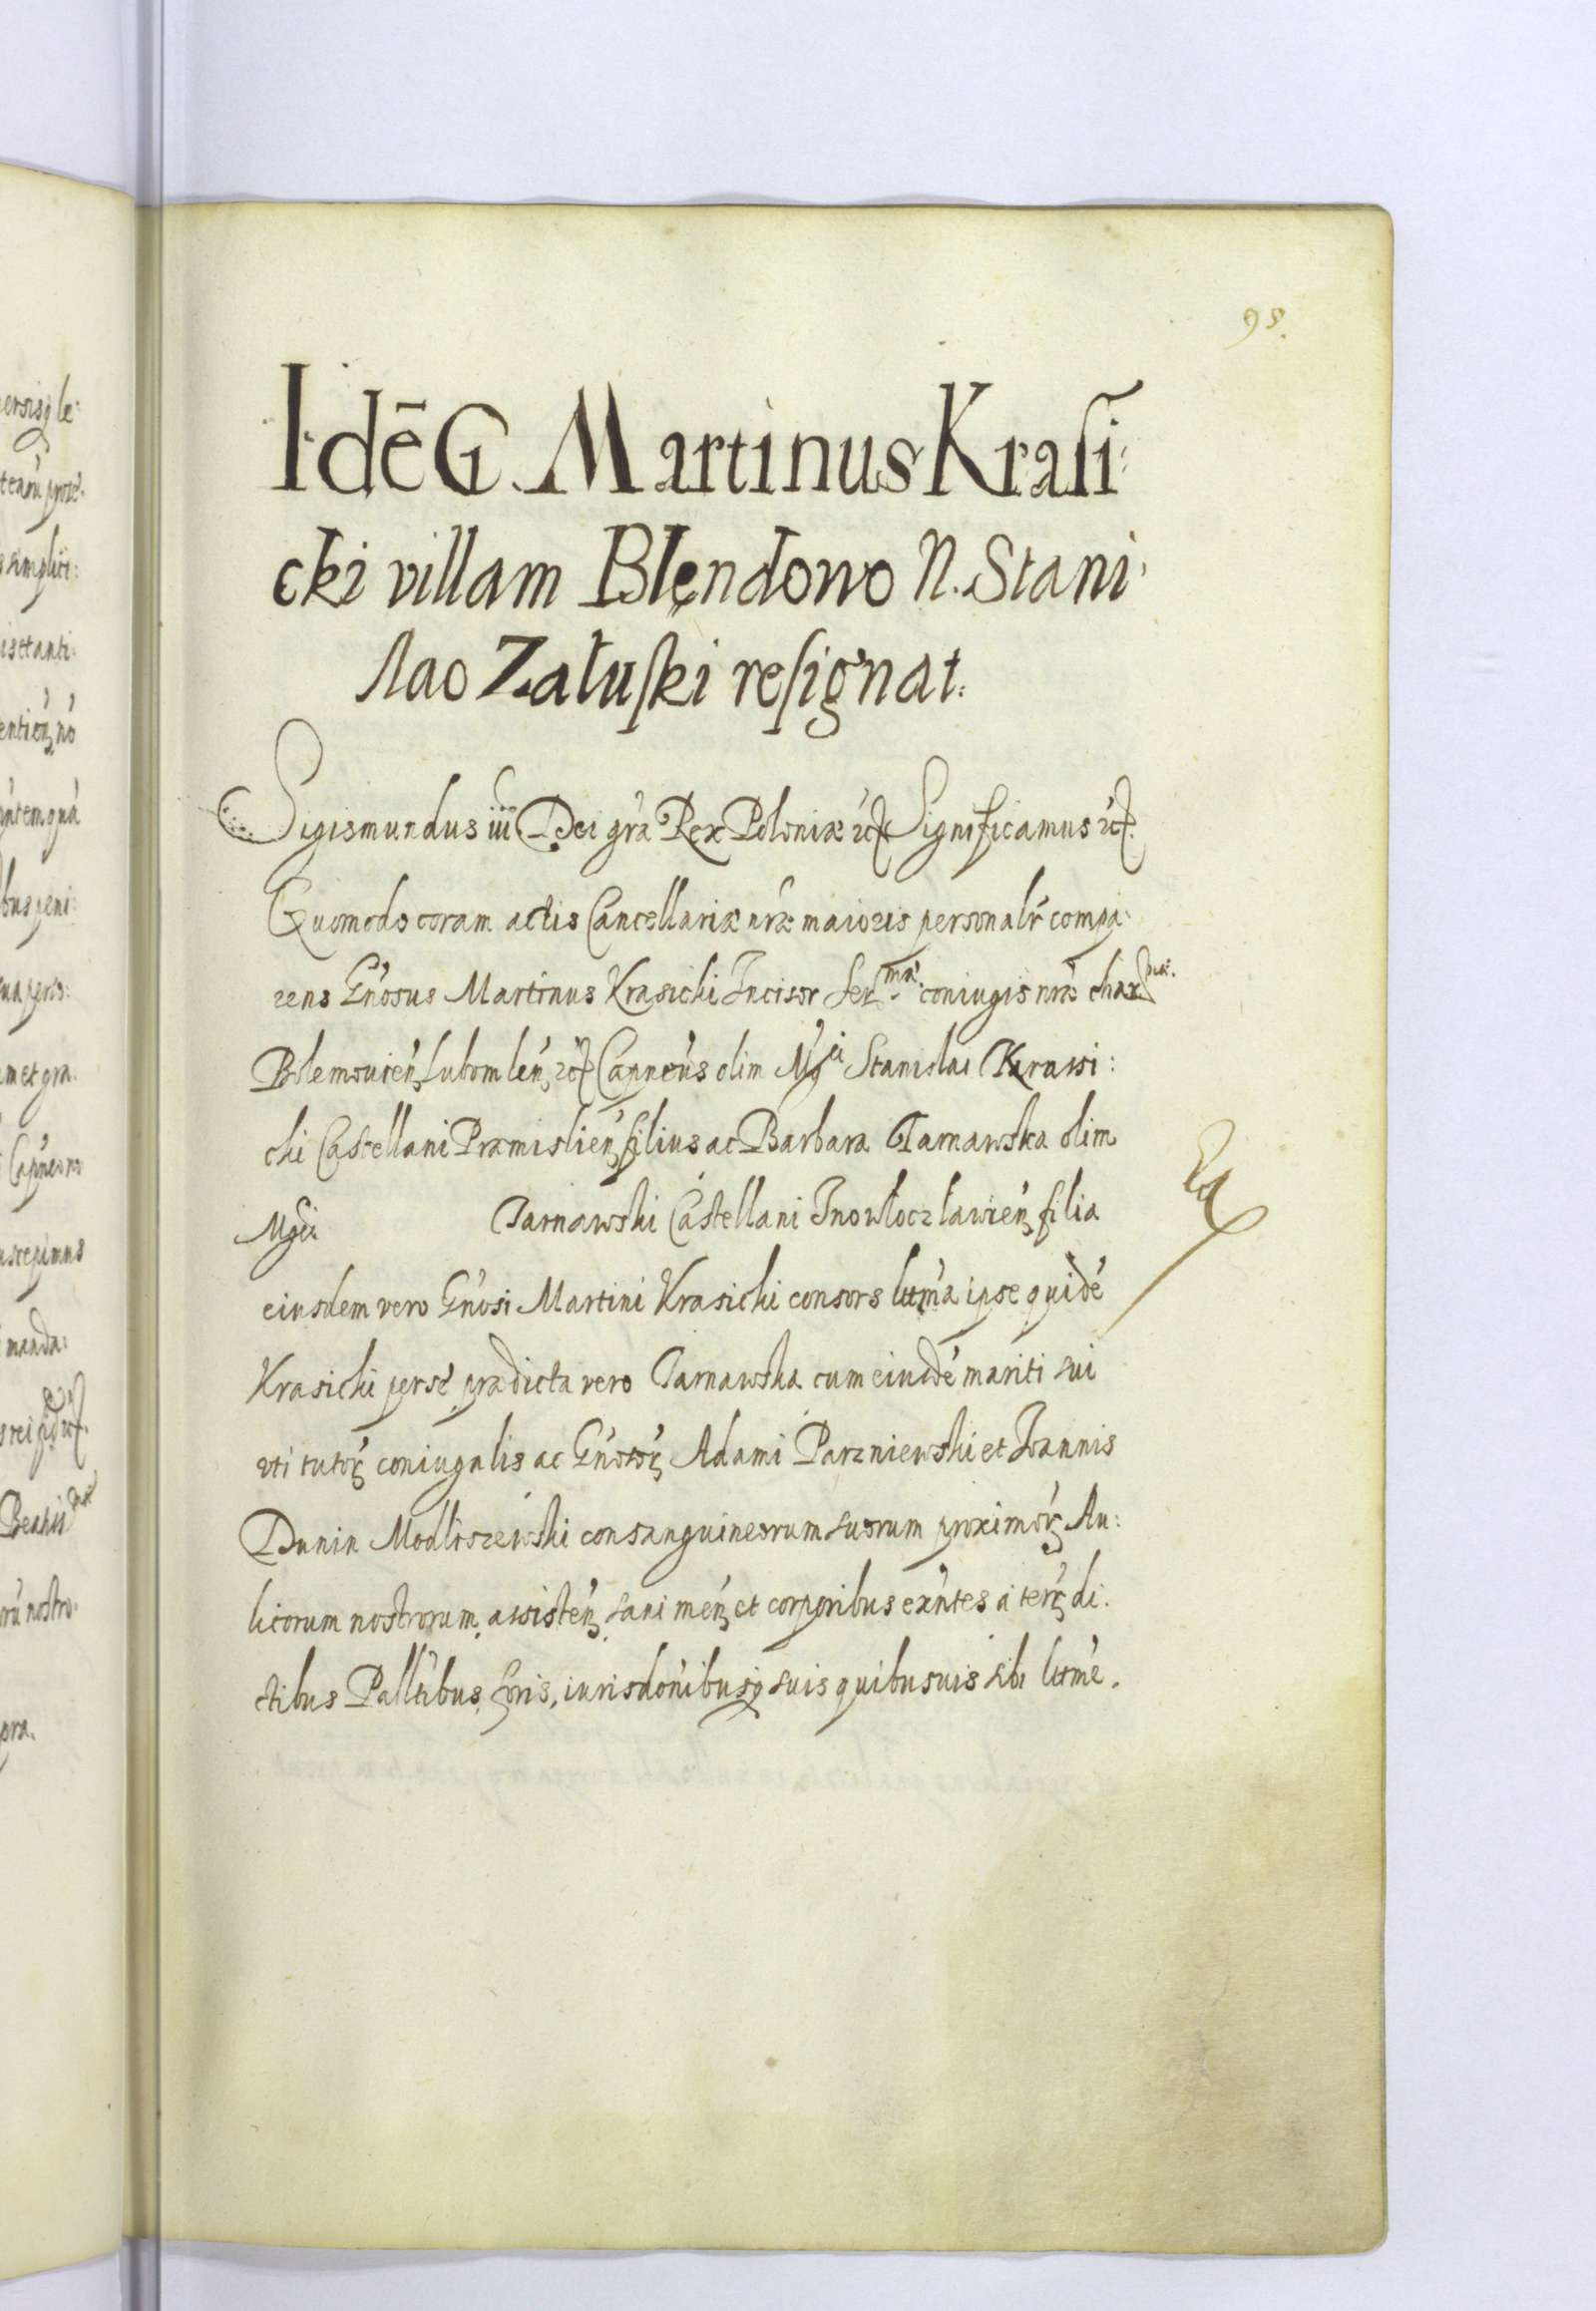 98.
Idē G. Martinus Krasi:
cki villam Blendowo N. Stani:
slao Załuski resignat.
Sigismundus iii Dei gra Rex Poloniæ etc Significamus etc.
Quomodo coram actis Cancellariæ nræ maioris personalr compa:
rens Gnosus Martinus Krasicki Incisor Ser.mæ coniugis nræ char.mæ
Bolemouien Lubomlen etc Capneus olim Mgci Stanislai Krassi:
cki Castellani Præmislien filius ac Barbara Tarnawska olim
Mgci Tarnawski Castellani Inowloczlawien filia
eiusdem vero Gnosi Martini Krasicki consors lttma ipse quidé
Krasicki per se prædicta vero Tarnawska cum eiusdé mariti sui
vti tutor coniugalis ac Gnosor Adami Parzniewski et Ioannis
Dunin Modliszewski consanguineorum suorum proximor Au:
licorum nostrorum assisten sani men et corporibus exntes a ter di:
ctibus Palltibus, foris, iurisdonibusq suis quibusuis sibi lttme.